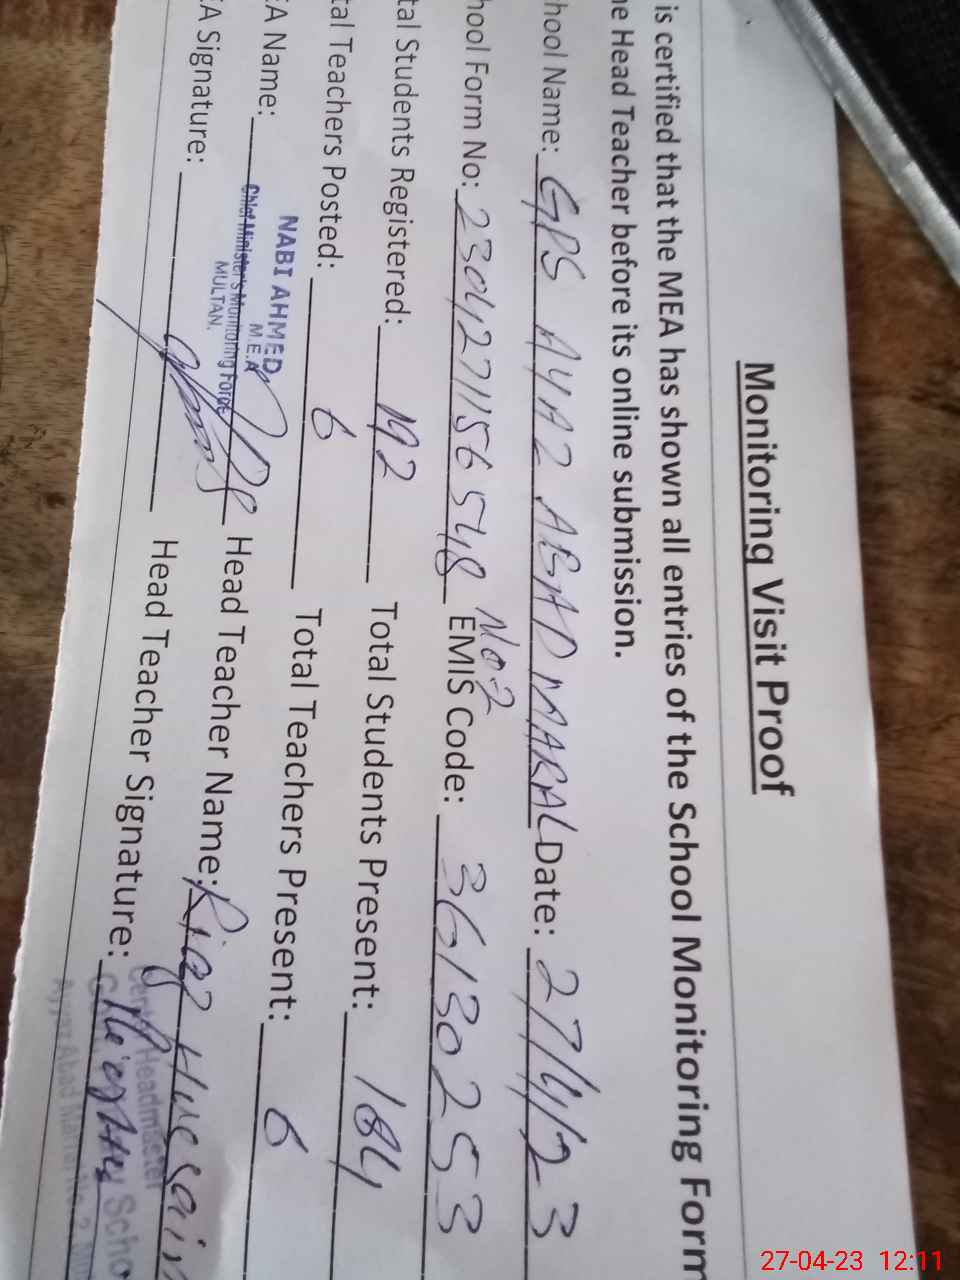 Monitoring Visit Proof
is certified that the MEA has shown all entries of the School Monitoring Form
he Head Teacher before its online submission.
hool Name: GPS AYAZ ABAD MARAL Date: 27/4/23
No-2
hool Form No: 230427115654 EMIS Code: 36130253
tal Students Registered: 192 Total Students Present: 184
tal Teachers Posted: 6 Total Teachers Present: 6
NABI AHMED
M.E.A
Chief Minister's Monitoring Force
MULTAN.
EA Name: Head Teacher Name: Riaz Hussain
EA Signature: Head Teacher Signature:
Headmaster
Scho
Abad Maral No. 2
27-04-23 12:11